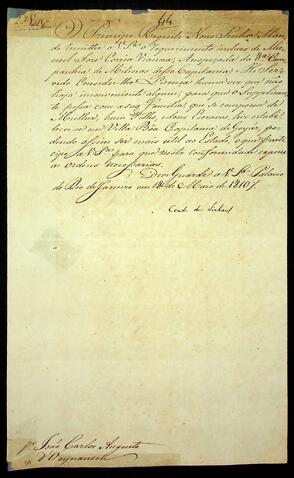 O Principe Regente Nosso Senhor Man
da remetter a V. Sª o Requerimento incluso de Ma
noel José Correa Vianna, Anspeçada da 8ª Com
panhia de Milicias dessa Capitania: He Ser
vido Conceder-lhe Licença huma vez que não
haja inconveniente algum, para que o Supplican
te possa com a sua Familia, que se compoem de
Mulher, hum Filho, e Escravos, hir estabele
cer-se em Villa Boa Capitania de Goyaz, po
dendo assim ser mais util ao Estado; o que parti
cipo a V. Sª para que nesta conformidade expessa
as ordens necessarias.
Deos Guarde a V. Sª Palacio
do Rio de Janeiro em 18 de Maio de 1810
Conde de Linhares
Sr. João Carlos Augusto
d'Oeynausen